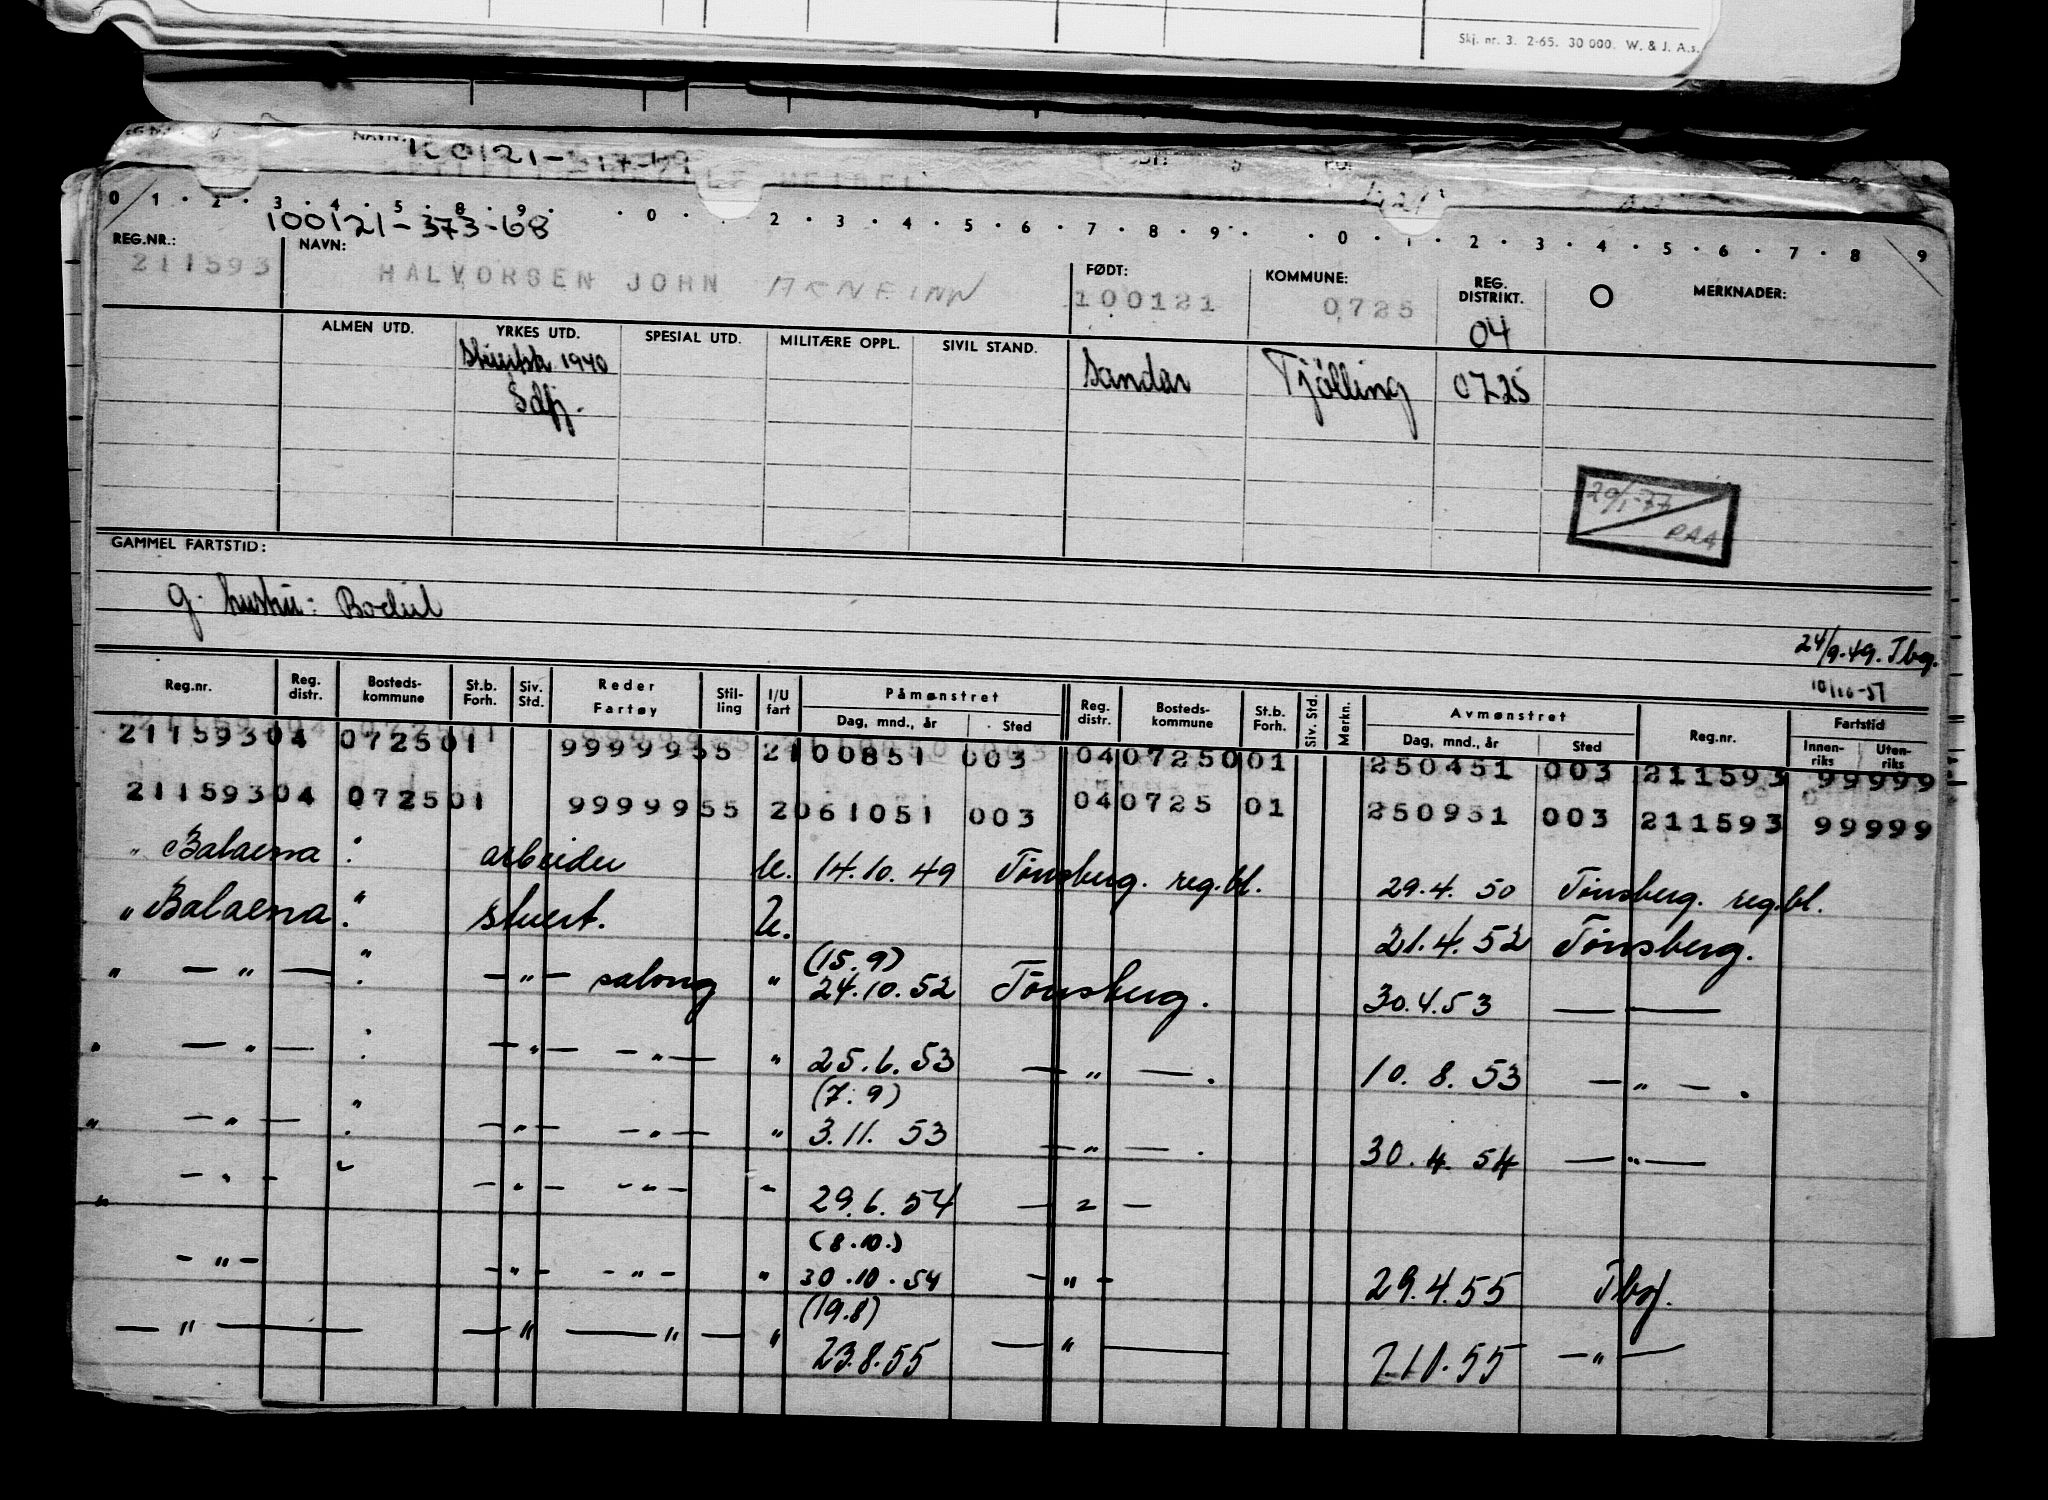 Skj. nr. 3. 2-65. 30 000. W. & J. A.s.
NAVN:
0 1 2 3 4 5 8 9 0 2 3 4 5 6 7 8 9 0 1 2 3 4 5 6 7 8 9
100121-373-68
REG.NR.: NAVN: FØDT: KOMMUNE: REG. DISTRIKT. MERKNADER:
211593 HALVORSEN JOHN ARNFINN 100121 0725 04
ALMEN UTD. YRKES UTD. SPESIAL UTD. MILITÆRE OPPL. SIVIL STAND.
1940 Sandar Tjölling 0725
Sdfj.
29/1-77
RAA
GAMMEL FARTSTID:
g. hustru: Bodil
24/9.49. Tbg.
Reg.nr. Reg. distr. Bosteds- kommune St.b. Forh. Siv. Std. Reder Fartøy Stil- ling I/U fart Påmønstret Reg. distr. Bosteds- kommune St.b. Forh. Siv. Std. Merkn. Avmønstret Reg.nr. Fartstid
Dag, mnd., år Sted Dag, mnd., år Sted Innen- riks Uten- riks
211593 04 0725 01 99999 55 2 100851 003 04 07250 01 250451 003 211593 99999
211593 04 0725 01 99999 55 2 061051 003 04 0725 01 250951 003 211593 99999
" Balaena arbeider U. 14.10.49 Tönsberg. reg.bl. 29.4.50 Tönsberg. reg.bl.
" Balaena " stuert. U. 21.4.52 Tönsberg.
(15.9)
" — " — " — " — salong " 24.10.52 Tönsberg. 30.4.53 — —
" — " — — " — — " — " 25.6.53 — " — . 10.8.53 — " — .
(7.9)
" — " — " — " — — " — " 3.11.53 — " — . 30.4.54 — " —
" — " — — " — — " — " 29.6.54 — " —
(8.10.)
— " — — " — — " — " 30.10.54 — " — 29.4.55 Tbg.
(19.8)
— " — — " — — " — " 23.8.55 — " — — " —